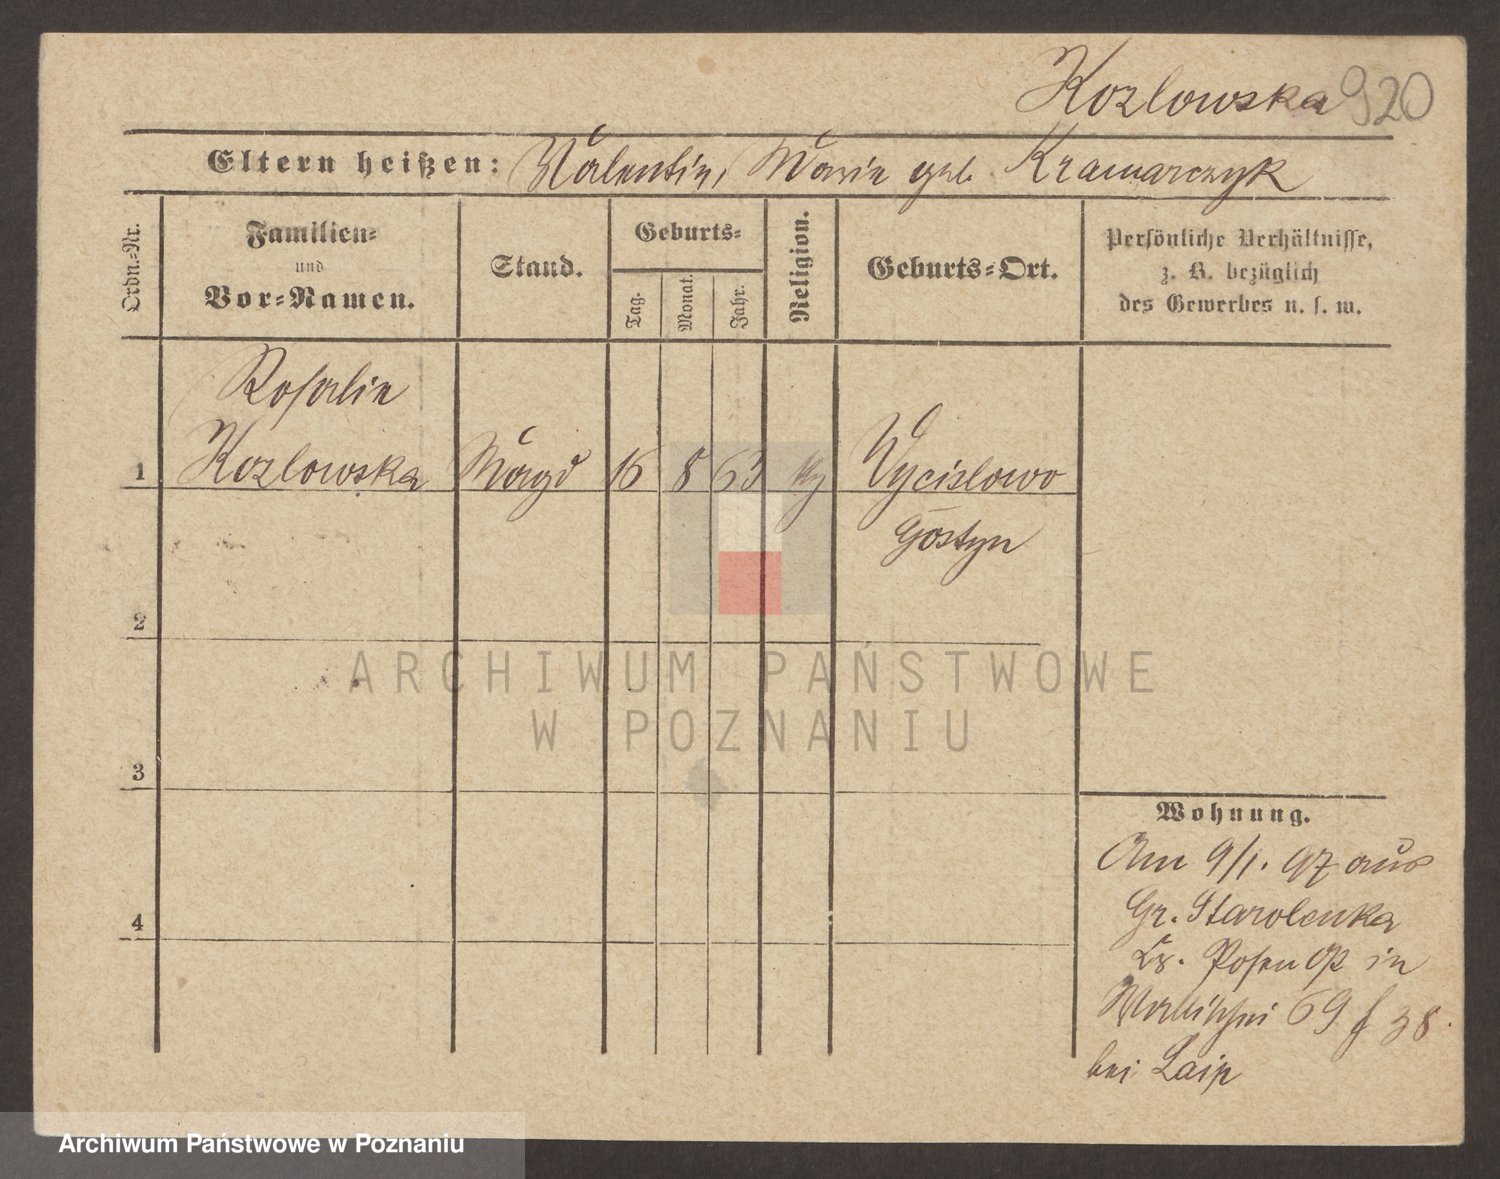 Kozlowska 920
Eltern heißen: Valentin, Marie geb. Kramarczyk
Ordn.-Nr.
Familien-
und
Vor-Namen.
Stand.
Geburts-
Tag.
Monat.
Jahr.
Religion.
Geburts-Ort.
Persönliche Verhältnisse,
z. B. bezüglich
des Gewerbes u. s. w.
Rosalie
1 Kozlowska Magd 16 8 63 Wycislowo
Gostyn
2
ARCHIWUM PAŃSTWOWE
W POZNANIU
3
Wohnung.
Am 9/1. 97 aus
Gr. Starolenka
Posen in
4
69 38
bei
Archiwum Państwowe w Poznaniu